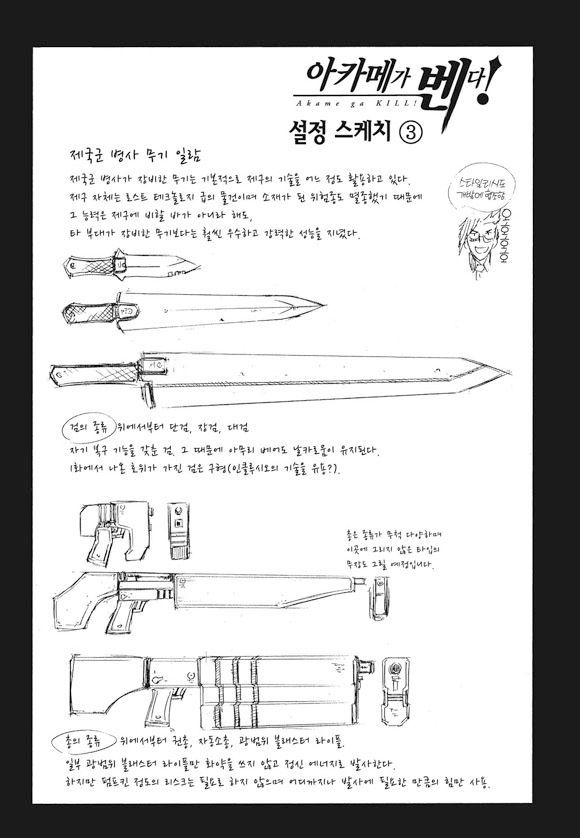 아카메가 벤다!
Akame ga KILL!
설정 스케치 ③
제국군 병사 무기 일람
제국군 병사가 장비한 무기는 기본적으로 제구의 기술을 어느 정도 활용하고 있다.
제구 자체는 로스트 테크놀로지 급의 물건이며 소재가 된 위험종도 멸종했기 때문에
그 능력은 제구에 비할 바가 아니라 해도,
타 부대가 장비한 무기보다는 훨씬 우수하고 강력한 성능을 지녔다.
스타일리시도
개발에 협조함
검의 종류 위에서부터 단검, 장검, 대검
자기 복구 기능을 갖춘 검. 그 때문에 아무리 베어도 날카로움이 유지된다.
1화에서 나온 호위가 가진 검은 구형(인클루시오의 기술을 유용?).
총은 종류가 무척 다양하며
이곳에 그리지 않은 타입의
무장도 그릴 예정입니다.
총의 종류 위에서부터 권총, 자동소총, 광범위 블래스터 라이플.
일부 광범위 블래스터 라이플만 화약을 쓰지 않고 정신 에너지로 발사한다.
하지만 펌프킨 정도의 리스크는 필요로 하지 않으며 어디까지나 발사에 필요한 만큼의 힘만 사용.